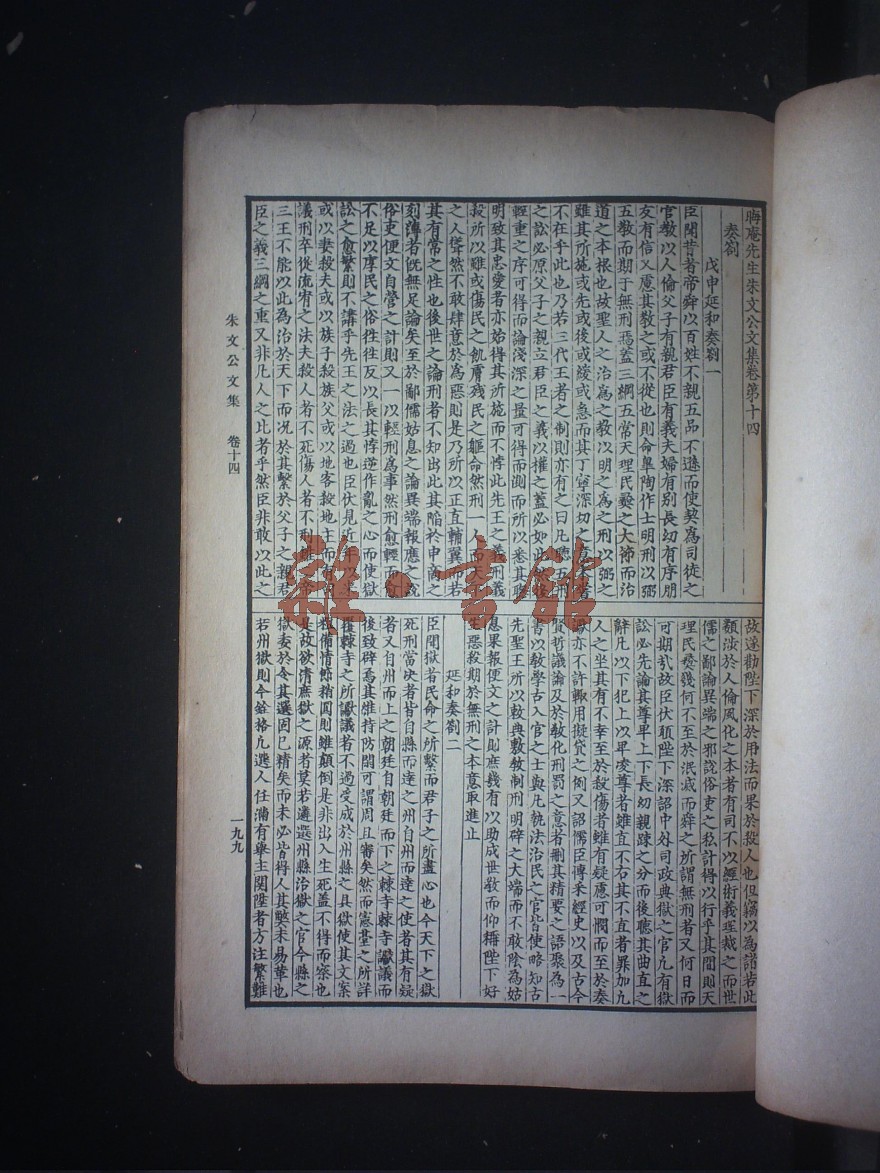 晦庵先生朱文公文集卷第十四
奏劄
戊申延和奏劄一
臣聞昔者帝舜以百姓不親五品不遜而使契爲司徒之
官敎以人倫父子有親君臣有義夫婦有別長幼有序朋
友有信又慮其敎之或不從也則命皐陶作士明刑以弼
五敎而期于無刑焉蓋三綱五常天理民彝之大節而治
道之本根也故聖人之治爲之敎以明之爲之刑以弼之
雖其所施或先或後或緩或急而其丁寧深切之
不在乎此也乃若三代王者之制則亦有之曰凡聽五
之訟必原父子之親立君臣之義以權之蓋必如此然後
輕重之序可得而論淺深之量可得而測而所以悉其聰
明致其忠愛者亦始得其所施而不悖此先王之義刑義
殺所以雖或傷民之飢膚殘民之軀命然刑一人而天下
之人聳然不敢肆意於爲惡則是乃所以正直輔翼而若
其有常之性也後世之論刑者不知出此其陷於申商之
刻薄者旣無足論矣至於鄙儒姑息之論異端報應之說
俗吏便文自營之計則又一以輕刑爲事然刑愈輕而愈
不足以厚民之俗往往反以長其悖逆作亂之心而使獄
訟之愈繁則不講乎先王之法之過也臣伏見近年以來
或以妻殺夫或以族子殺族父或以地客殺地主而有司
議刑卒從流宥之法夫殺人者不死傷人者不刑雖二帝
三王不能以此爲治於天下而况於其繫於父子之親君
臣之義三綱之重又非凡人之比者乎然臣非敢以此之
故遂勸陛下深於用法而果於殺人也但竊以為諸若此
類涉於人倫風化之本者有司不以經術義理裁之而世
儒之鄙論異端之邪說俗吏之私計得以行乎其間則天
理民彝幾何不至於泯滅而舜之所謂無刑者又何日而
可期哉故臣伏願陛下深詔中外司政典獄之官凡有獄
訟必先論其尊卑上下長幼親疎之分而後聽其曲直之
辭凡以下犯上以卑凌尊者雖直不右其不直者罪加凡
人之坐其有不幸至於殺傷者雖有疑慮可憫而至於奏
讞亦不許輒用擬貸之例又詔儒臣博采經史以及古今
賢哲議論及於敎化刑罰之意者刪其精要之語聚為一
書以敎學古入官之士與凡執法治民之官皆使略知古
先聖王所以敕典敷敎制刑明辟之大端而不敢陰為姑
息果報便文之計則庶幾有以助成世敎而仰稱陛下好
生惡殺期於無刑之本意取進止
延和奏劄二
臣聞獄者民命之所繫而君子之所盡心也今天下之獄
死刑當决者皆自縣而達之州自州而達之使者其有疑
者又自州而上之朝廷自朝廷而下之棘寺棘寺讞議而
後致辟焉其維持防閑可謂周且審矣然而憲臺之所詳
覆棘寺之所讞議者不過受成於州縣之具獄使其文案
粗備情節稍圓則雖顛倒是非出入生死蓋不得而察也
是故欲清庶獄之源者莫若遴選州縣治獄之官今縣之
獄委於令其選固已精矣而未必皆得人其弊未易革也
若州獄則今銓格凡選人任滿有舉主關陞者方注繁難
朱文公文集　卷十四
一九九
雜·書館